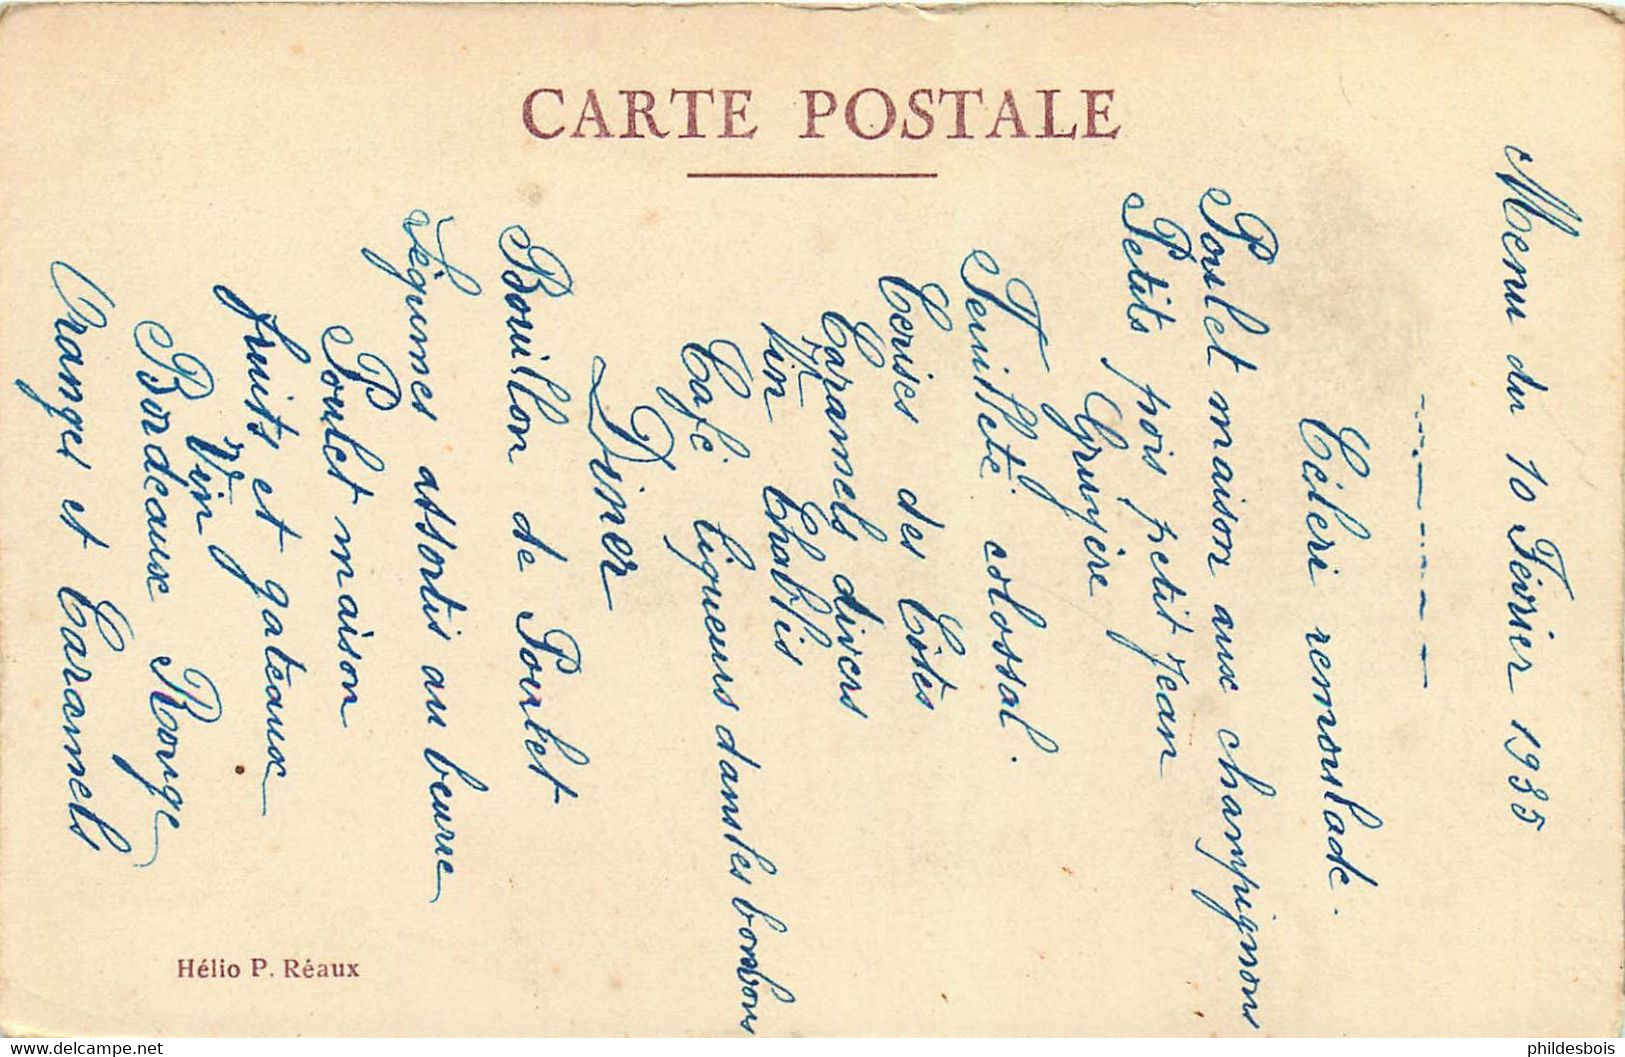 CARTE POSTALE
Menu du 10 Février 1935
Céleri remoulade.
Poulet maison aux champignons
Petits pois petit Jean
Gruyère
Feuilleté colossal.
Cerises des Côtes
Caramels divers
Vin Chablis
Café liqueurs dans les bonbons
Diner
Bouillon de Poulet
Légumes assortis au beurre
Poulet maison
fruits et gateaux
Vin
Bordeaux Rouge
Oranges et Caramels
Hélio P. Réaux
www.delcampe.net
phildesbois